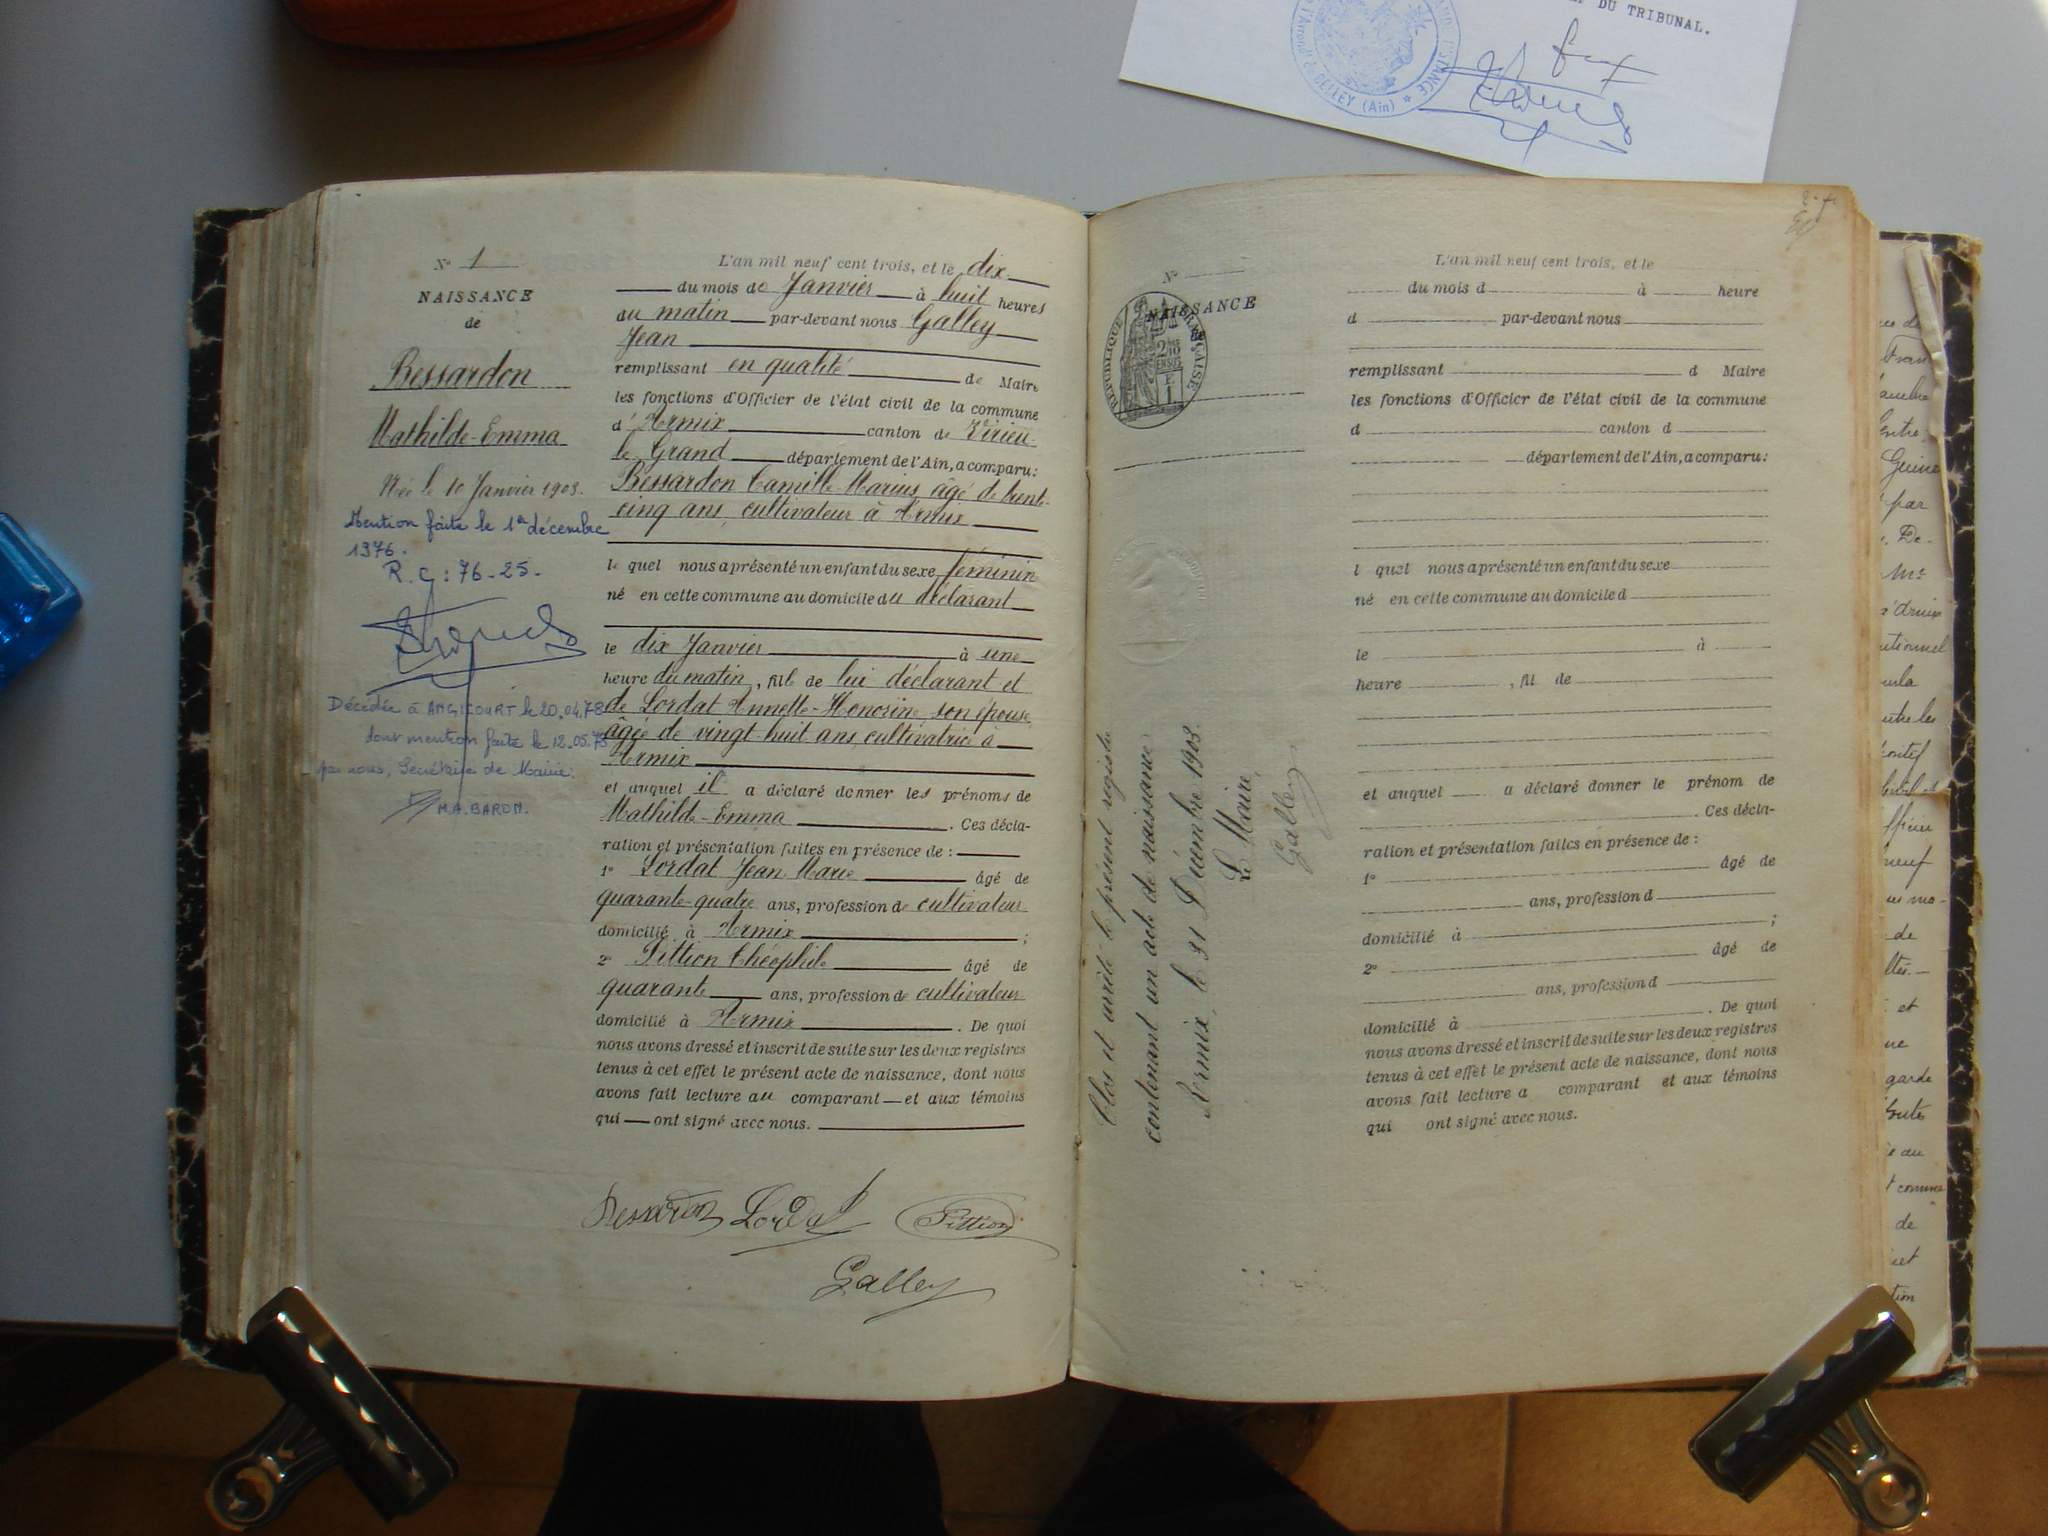 DU TRIBUNAL.
BELLEY (Ain) *
N° 1
NAISSANCE
de
Bessardon
Mathilde-Emma
Née le 10 Janvier 1903.
Mention faite le 1er décembre
1976.
R.G : 76-25-
Décédée à ANGICOURT le 20.04.78
dont mention faite le 12.05.78
par nous, Secrétaire de Mairie:
M.A. BARON.
L'an mil neuf cent trois, et le dix
du mois de Janvier à huit heures
du matin par-devant nous Galley
Jean
remplissant en qualité de Maire
les fonctions d'Officier de l'état civil de la commune
d'Armix canton de Virieu-
le Grand département de l'Ain, a comparu:
Bessardon Camille-Marius, âgé de trente-
cinq ans, cultivateur à Armix
le quel nous a présenté un enfant du sexe féminin
né en cette commune au domicile du déclarant
le dix Janvier à une
heure du matin, fille de lui déclarant et
de Lordat Annette-Honorine, son épouse,
âgée de vingt-huit ans, cultivatrice à
Armix
et auquel il a déclaré donner les prénoms de
Mathilde-Emma. Ces décla-
ration et présentation faites en présence de :
1° Lordat Jean Marie âgé de
quarante-quatre ans, profession de cultivateur
domicilié à Armix ;
2° Pittion Théophile âgé de
quarante ans, profession de cultivateur
domicilié à Armix. De quoi
nous avons dressé et inscrit de suite sur les deux registres
tenus à cet effet le présent acte de naissance, dont nous
avons fait lecture au comparant et aux témoins
qui ont signé avec nous.
Bessardon Lordat Pittion
Galley
N°
NAISSANCE
RÉPUBLIQUE FRANÇAISE
Clos et arrêté le présent registre
contenant un acte de naissance
Armix, le 31 Décembre 1903.
Le Maire,
Galley
L'an mil neuf cent trois, et le
du mois d à heure
d par-devant nous
remplissant d Maire
les fonctions d'Officier de l'état civil de la commune
d canton d
département de l'Ain, a comparu:
l quel nous a présenté un enfant du sexe
né en cette commune au domicile d
le à
heure , fil de
et auquel a déclaré donner le prénom de
. Ces décla-
ration et présentation faites en présence de :
1° âgé de
ans, profession d
domicilié à ;
2° âgé de
ans, profession d
domicilié à . De quoi
nous avons dressé et inscrit de suite sur les deux registres
tenus à cet effet le présent acte de naissance, dont nous
avons fait lecture a comparant et aux témoins
qui ont signé avec nous.